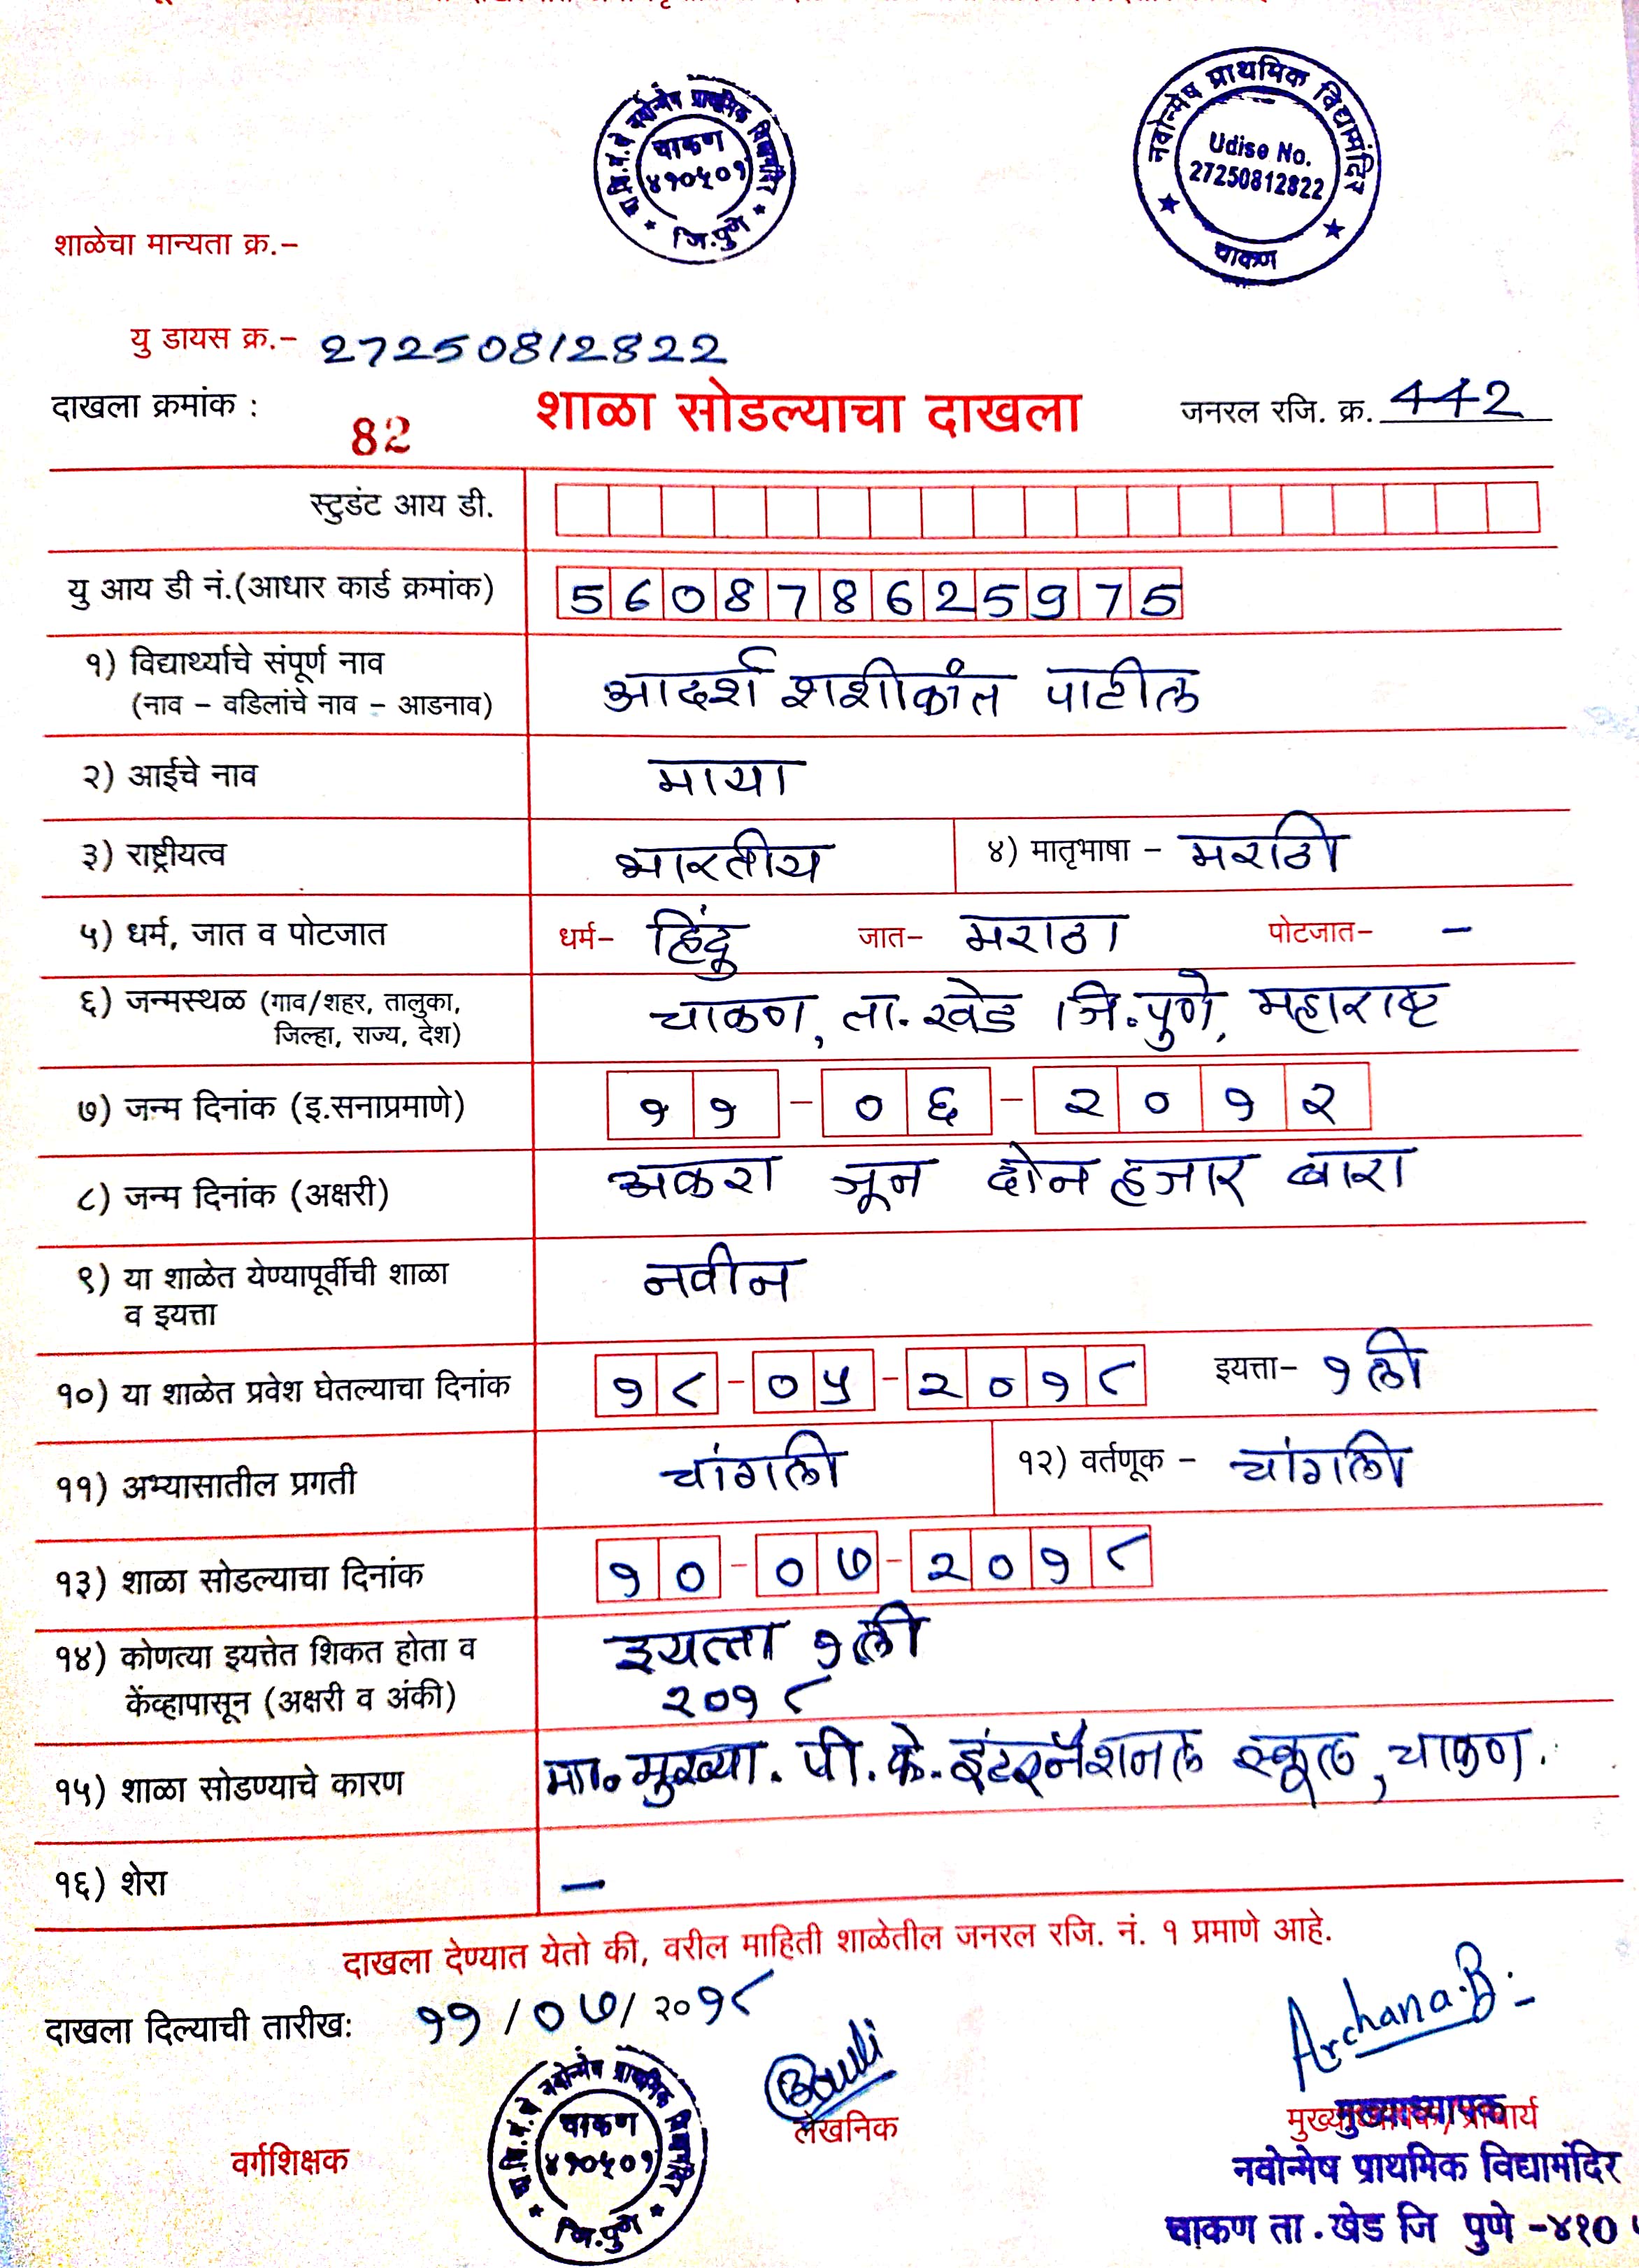 नवोन्मेष प्राथमिक विद्यामंदिर
चाकण
४१०५०१
जि.पुणे
नवोन्मेष प्राथमिक विद्यामंदिर
Udise No.
27250812822
चाकण
शाळेचा मान्यता क्र.–
यु डायस क्र.– 27250812822
दाखला क्रमांक : 82 शाळा सोडल्याचा दाखला जनरल रजि. क्र. 442
स्टुडंट आय डी.
यु आय डी नं.(आधार कार्ड क्रमांक) 560878625975
१) विद्यार्थ्याचे संपूर्ण नाव आदर्श शशीकांत पाटील
(नाव – वडिलांचे नाव – आडनाव)
२) आईचे नाव माया
३) राष्ट्रीयत्व भारतीय ४) मातृभाषा – मराठी
५) धर्म, जात व पोटजात धर्म– हिंदू जात– मराठा पोटजात– –
६) जन्मस्थळ (गाव/शहर, तालुका, चाकण, ता. खेड जि. पुणे, महाराष्ट्र
जिल्हा, राज्य, देश)
७) जन्म दिनांक (इ.सनाप्रमाणे) ११–०६–२०१२
८) जन्म दिनांक (अक्षरी) अकरा जून दोन हजार बारा
९) या शाळेत येण्यापूर्वीची शाळा नवीन
व इयत्ता
१०) या शाळेत प्रवेश घेतल्याचा दिनांक १८–०५–२०१८ इयत्ता– १ली
११) अभ्यासातील प्रगती चांगली १२) वर्तणूक – चांगली
१३) शाळा सोडल्याचा दिनांक १०–०७–२०१८
१४) कोणत्या इयत्तेत शिकत होता व इयत्ता १ली
केंव्हापासून (अक्षरी व अंकी) २०१८
१५) शाळा सोडण्याचे कारण मा. मुख्या. पी. के. इंटरनॅशनल स्कूल, चाकण.
१६) शेरा –
दाखला देण्यात येतो की, वरील माहिती शाळेतील जनरल रजि. नं. १ प्रमाणे आहे.
दाखला दिल्याची तारीख: ११/०७/२०१८
Archana.B
वर्गशिक्षक
नवोन्मेष प्राथमिक विद्यामंदिर
चाकण
४१०५०१
जि.पुणे
लेखनिक
मुख्याध्यापक/प्राचार्य
मुख्याध्यापक
नवोन्मेष प्राथमिक विद्यामंदिर
चाकण ता . खेड जि पुणे -४१०